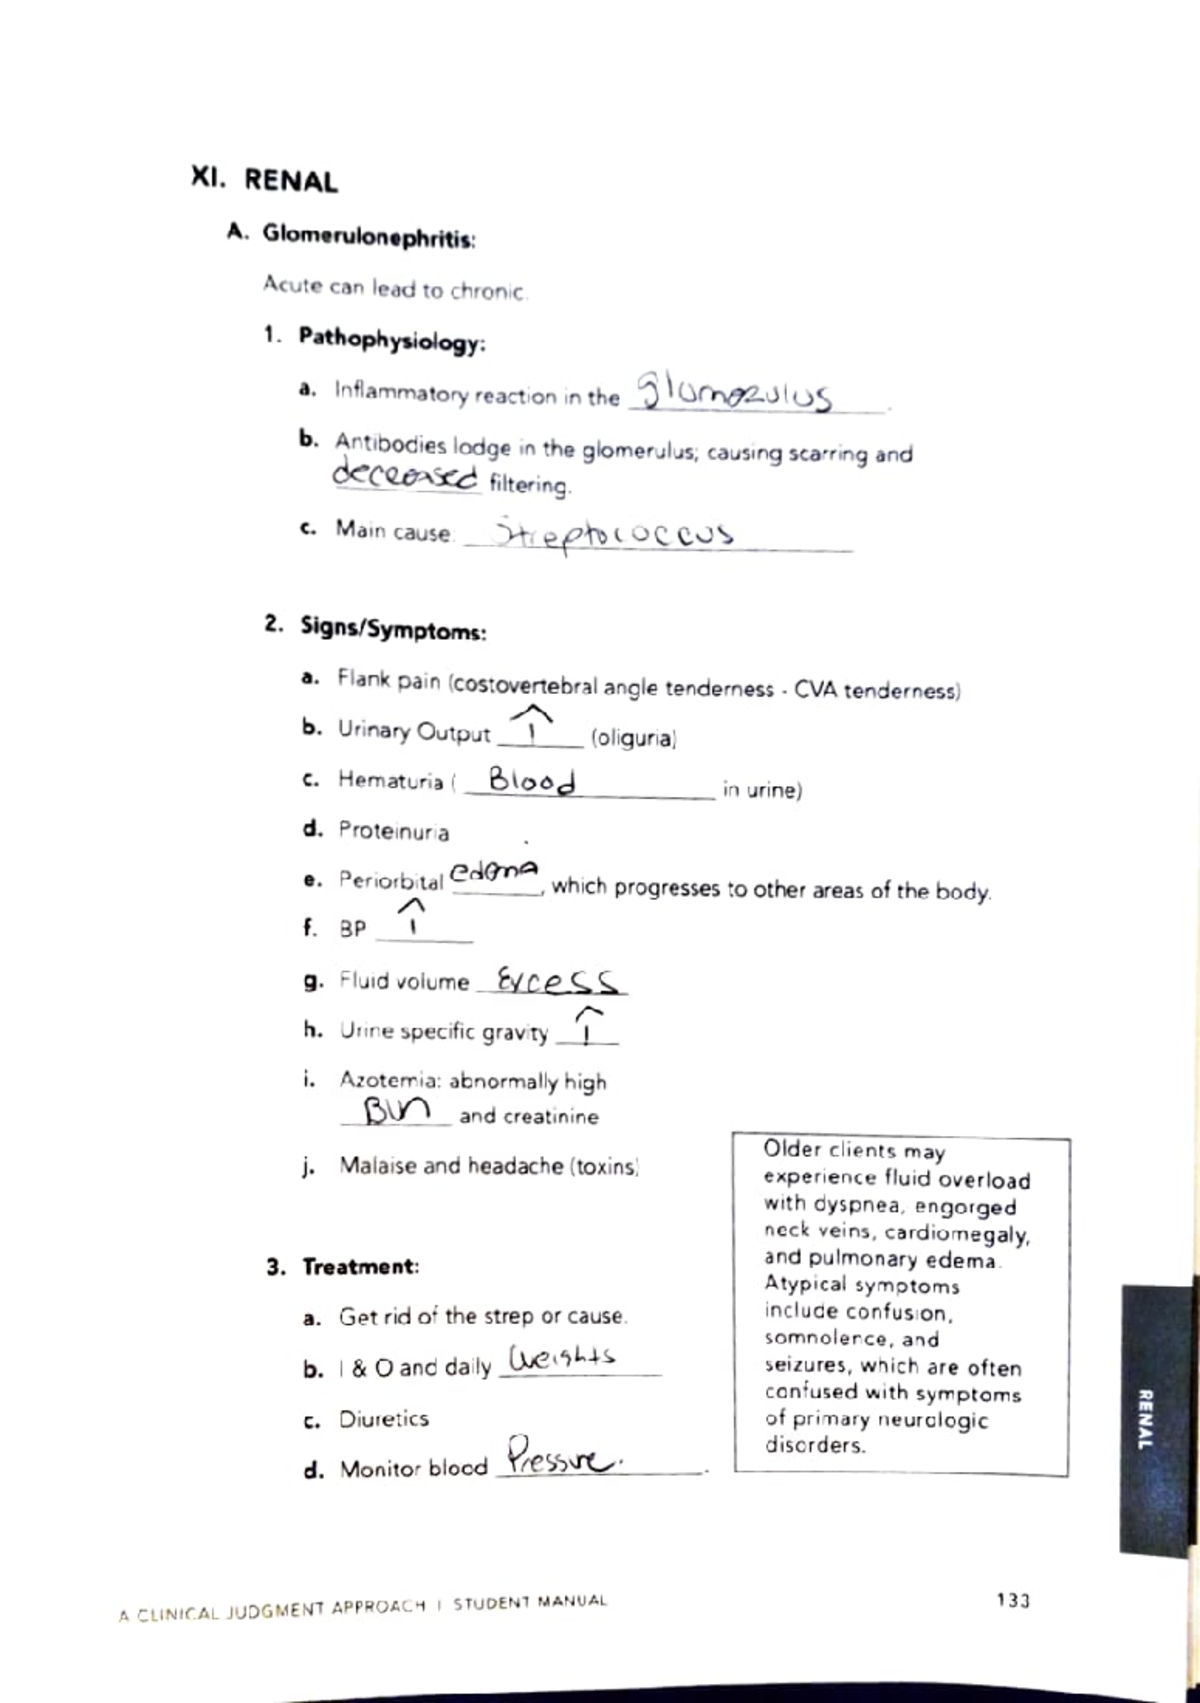 XI. RENAL
A. Glomerulonephritis:
Acute can lead to chronic.
1. Pathophysiology:
a. Inflammatory reaction in the glomerulus.
b. Antibodies lodge in the glomerulus; causing scarring and
decreased filtering.
c. Main cause: Streptococcus
2. Signs/Symptoms:
a. Flank pain (costovertebral angle tenderness - CVA tenderness)
b. Urinary Output ↑ (oliguria)
c. Hematuria ( Blood in urine)
d. Proteinuria
e. Periorbital edema, which progresses to other areas of the body.
f. BP ↑
g. Fluid volume Excess
h. Urine specific gravity ↑
i. Azotemia: abnormally high
BUN and creatinine
j. Malaise and headache (toxins)
3. Treatment:
a. Get rid of the strep or cause.
b. I & O and daily weights
c. Diuretics
d. Monitor blood Pressure.
Older clients may
experience fluid overload
with dyspnea, engorged
neck veins, cardiomegaly,
and pulmonary edema.
Atypical symptoms
include confusion,
somnolence, and
seizures, which are often
confused with symptoms
of primary neurologic
disorders.
RENAL
A CLINICAL JUDGMENT APPROACH | STUDENT MANUAL
133